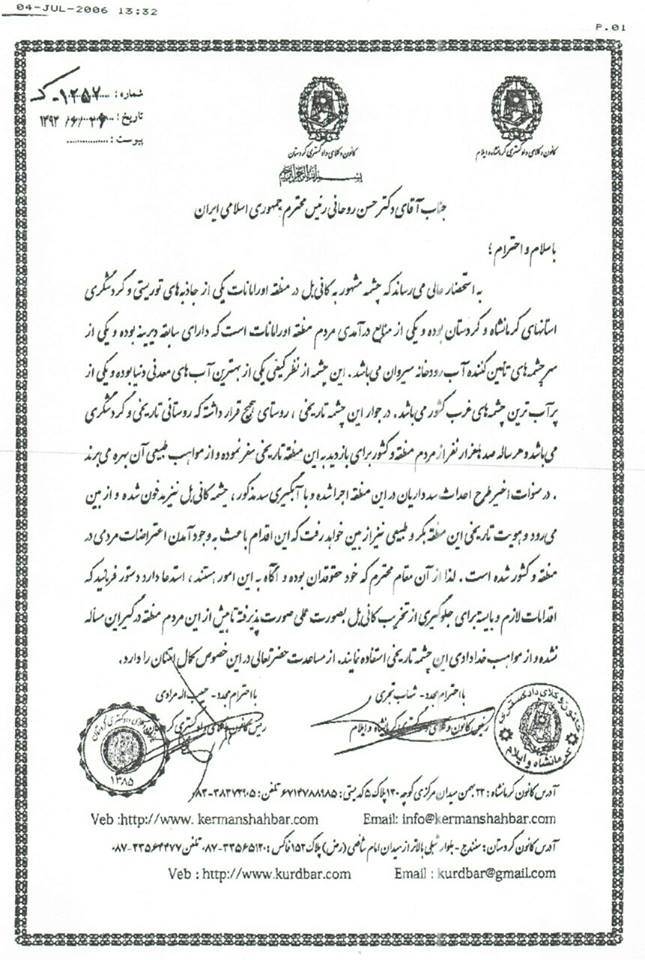 04-JUL-2006 13:32
P.01
شماره : ۱۲۵۷-ک
تاریخ : ۱۳۹۳/۶/۲۶
پیوست : ..............
کانون وکلای دادگستری کردستان
کانون وکلای دادگستری کرمانشاه و ایلام
جناب آقای دکتر حسن روحانی رئیس محترم جمهوری اسلامی ایران
باسلام و احترام ؛
به استحضار عالی می رساند که چشمه مشهور به کانی بل در منطقه اورامانات یکی از جاذبه های توریستی و گردشگری
استانهای کرمانشاه و کردستان بوده و یکی از منابع درآمدی مردم منطقه اورامانات است که دارای سابقه دیرینه بوده و یکی از
سرچشمه های تامین کننده آب رودخانه سیروان می باشد . این چشمه از نظر کیفی یکی از بهترین آب های معدنی دنیا بوده و یکی از
پرآب ترین چشمه های غرب کشور می باشد . در جوار این چشمه تاریخی ، روستای هجیج قرار داشته که روستائی تاریخی و گردشگری
می باشد و هر ساله صدها هزار نفر از مردم منطقه و کشور برای بازدید به این منطقه تاریخی سفر نموده و از مواهب طبیعی آن بهره می برند
. در سنوات اخیر طرح احداث سد داریان در این منطقه اجرا شده و با آبگیری سد مذکور ، چشمه کانی بل نیز مدفون شده و از بین
می رود و هویت تاریخی این منطقه بکر و طبیعی نیز از بین خواهد رفت که این اقدام باعث به وجود آمدن اعتراضات مردمی در
منطقه و کشور شده است . لذا از آن مقام محترم که خود حقوقدان بوده و آگاه به این امور هستند ، استدعا دارد دستور فرمائید که
اقدامات لازم و بایسته برای جلوگیری از تخریب کانی بل بصورت عملی صورت پذیرفته تا بیش از این مردم منطقه درگیر این مسأله
نشده و از مواهب خدادادی این چشمه تاریخی استفاده نمایند . از مساعدت حضرتعالی در این خصوص کمال امتنان را دارد .
با احترام مجدد - شباب تجری
با احترام مجدد - حبیب اله مرادی
رئیس کانون وکلای دادگستری کرمانشاه و ایلام
رئیس کانون وکلای دادگستری
کرمانشاه و ایلام
۱۳۸۵
آدرس کانون کرمانشاه : ۲۲ بهمن میدان مرکزی کوچه ۱۳۰ پلاک ۵ کدپستی : ۶۷۱۴۷۸۸۹۸۵ تلفن : ۳۸۳۷۳۹۰۵-۰۸۳
Veb :http://www. kermanshahbar.com Email: info@kermanshahbar.com
آدرس کانون کردستان : سنندج - بلوار شبلی بالاتر از میدان امام شافعی (رض) پلاک ۱۵۲ فاکس : ۳۳۵۶۵۱۲۰-۰۸۷ تلفن ۳۳۵۶۴۴۷۷-۰۸۷
Veb : http://www.kurdbar.com Email : kurdbar@gmail.com